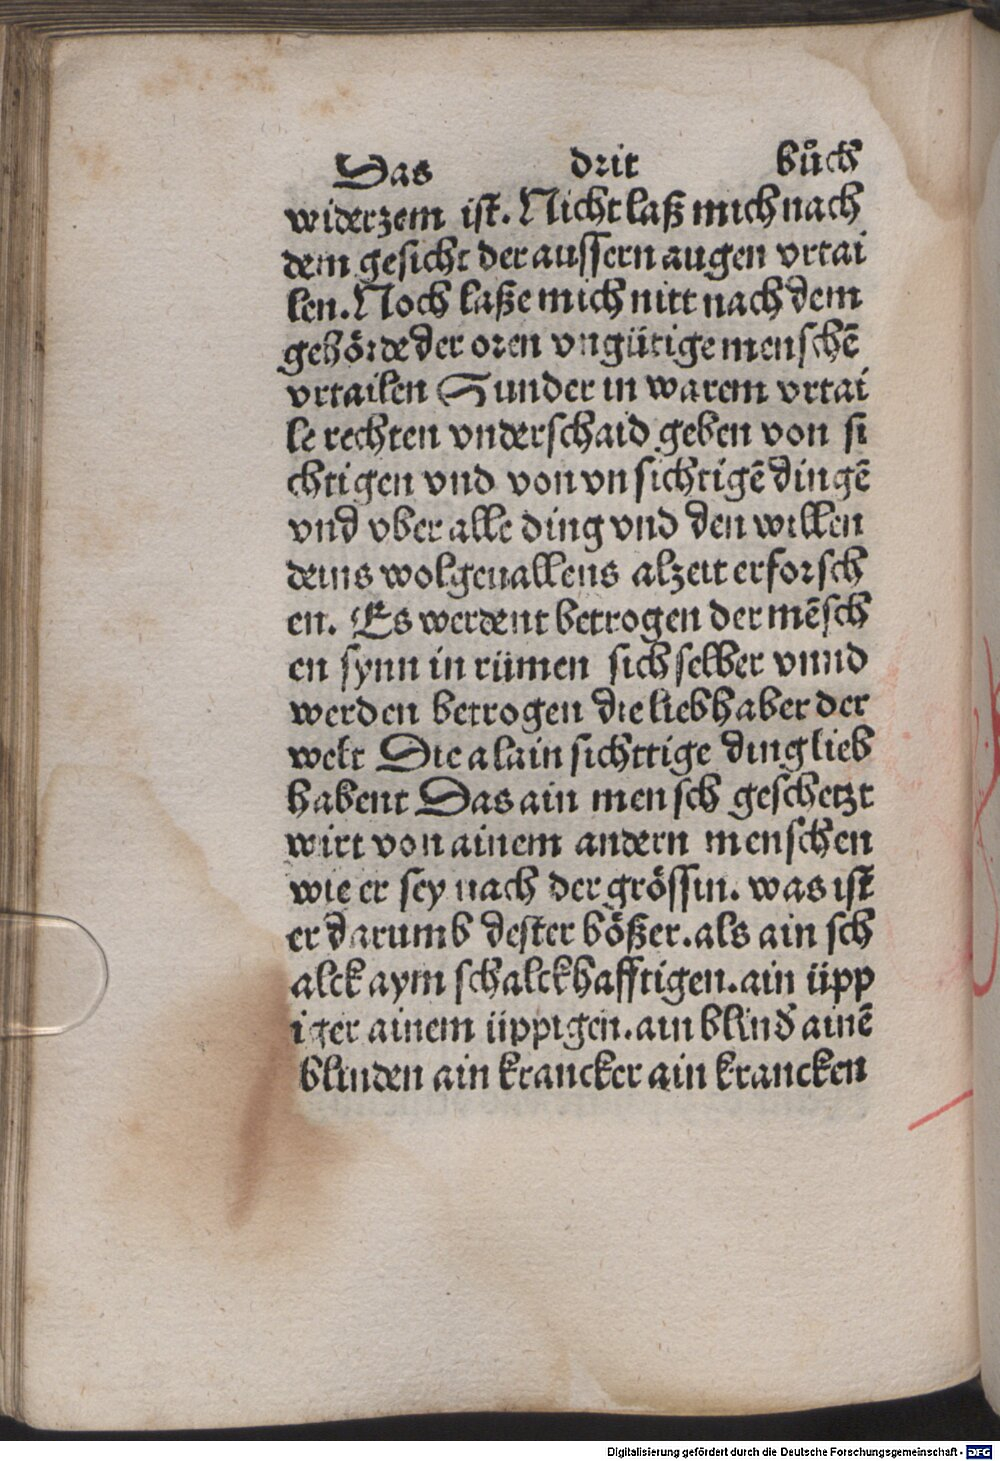 Das drit bůch
widerzem ist. Nicht laß mich nach
dem gesicht der aussern augen vrtai
len. Noch laße mich nitt nach dem
gehörde der oren vngütige menschē
vrtailen Sunder in warem vrtai
le rechten vnderschaid geben von si
chtigen vnd von vnsichtigē dingē
vnd vber alle ding vnd den willen
deins wolgeuallens alzeit erforsch
en. Es werdent betrogen der mēsch
en synn in rümen sich selber vnnd
werden betrogen die liebhaber der
welt Die alain sichttige ding lieb
habent Das ain mensch geschetzt
wirt von ainem andern menschen
wie er sey nach der grössin. was ist
er darumb dester bößer. als ain sch
alck aym schalckhafftigen. ain üpp
iger ainem üppigen. ain blind ainē
blinden ain krancker ain krancken
Digitalisierung gefördert durch die Deutsche Forschungsgemeinschaft - DFG